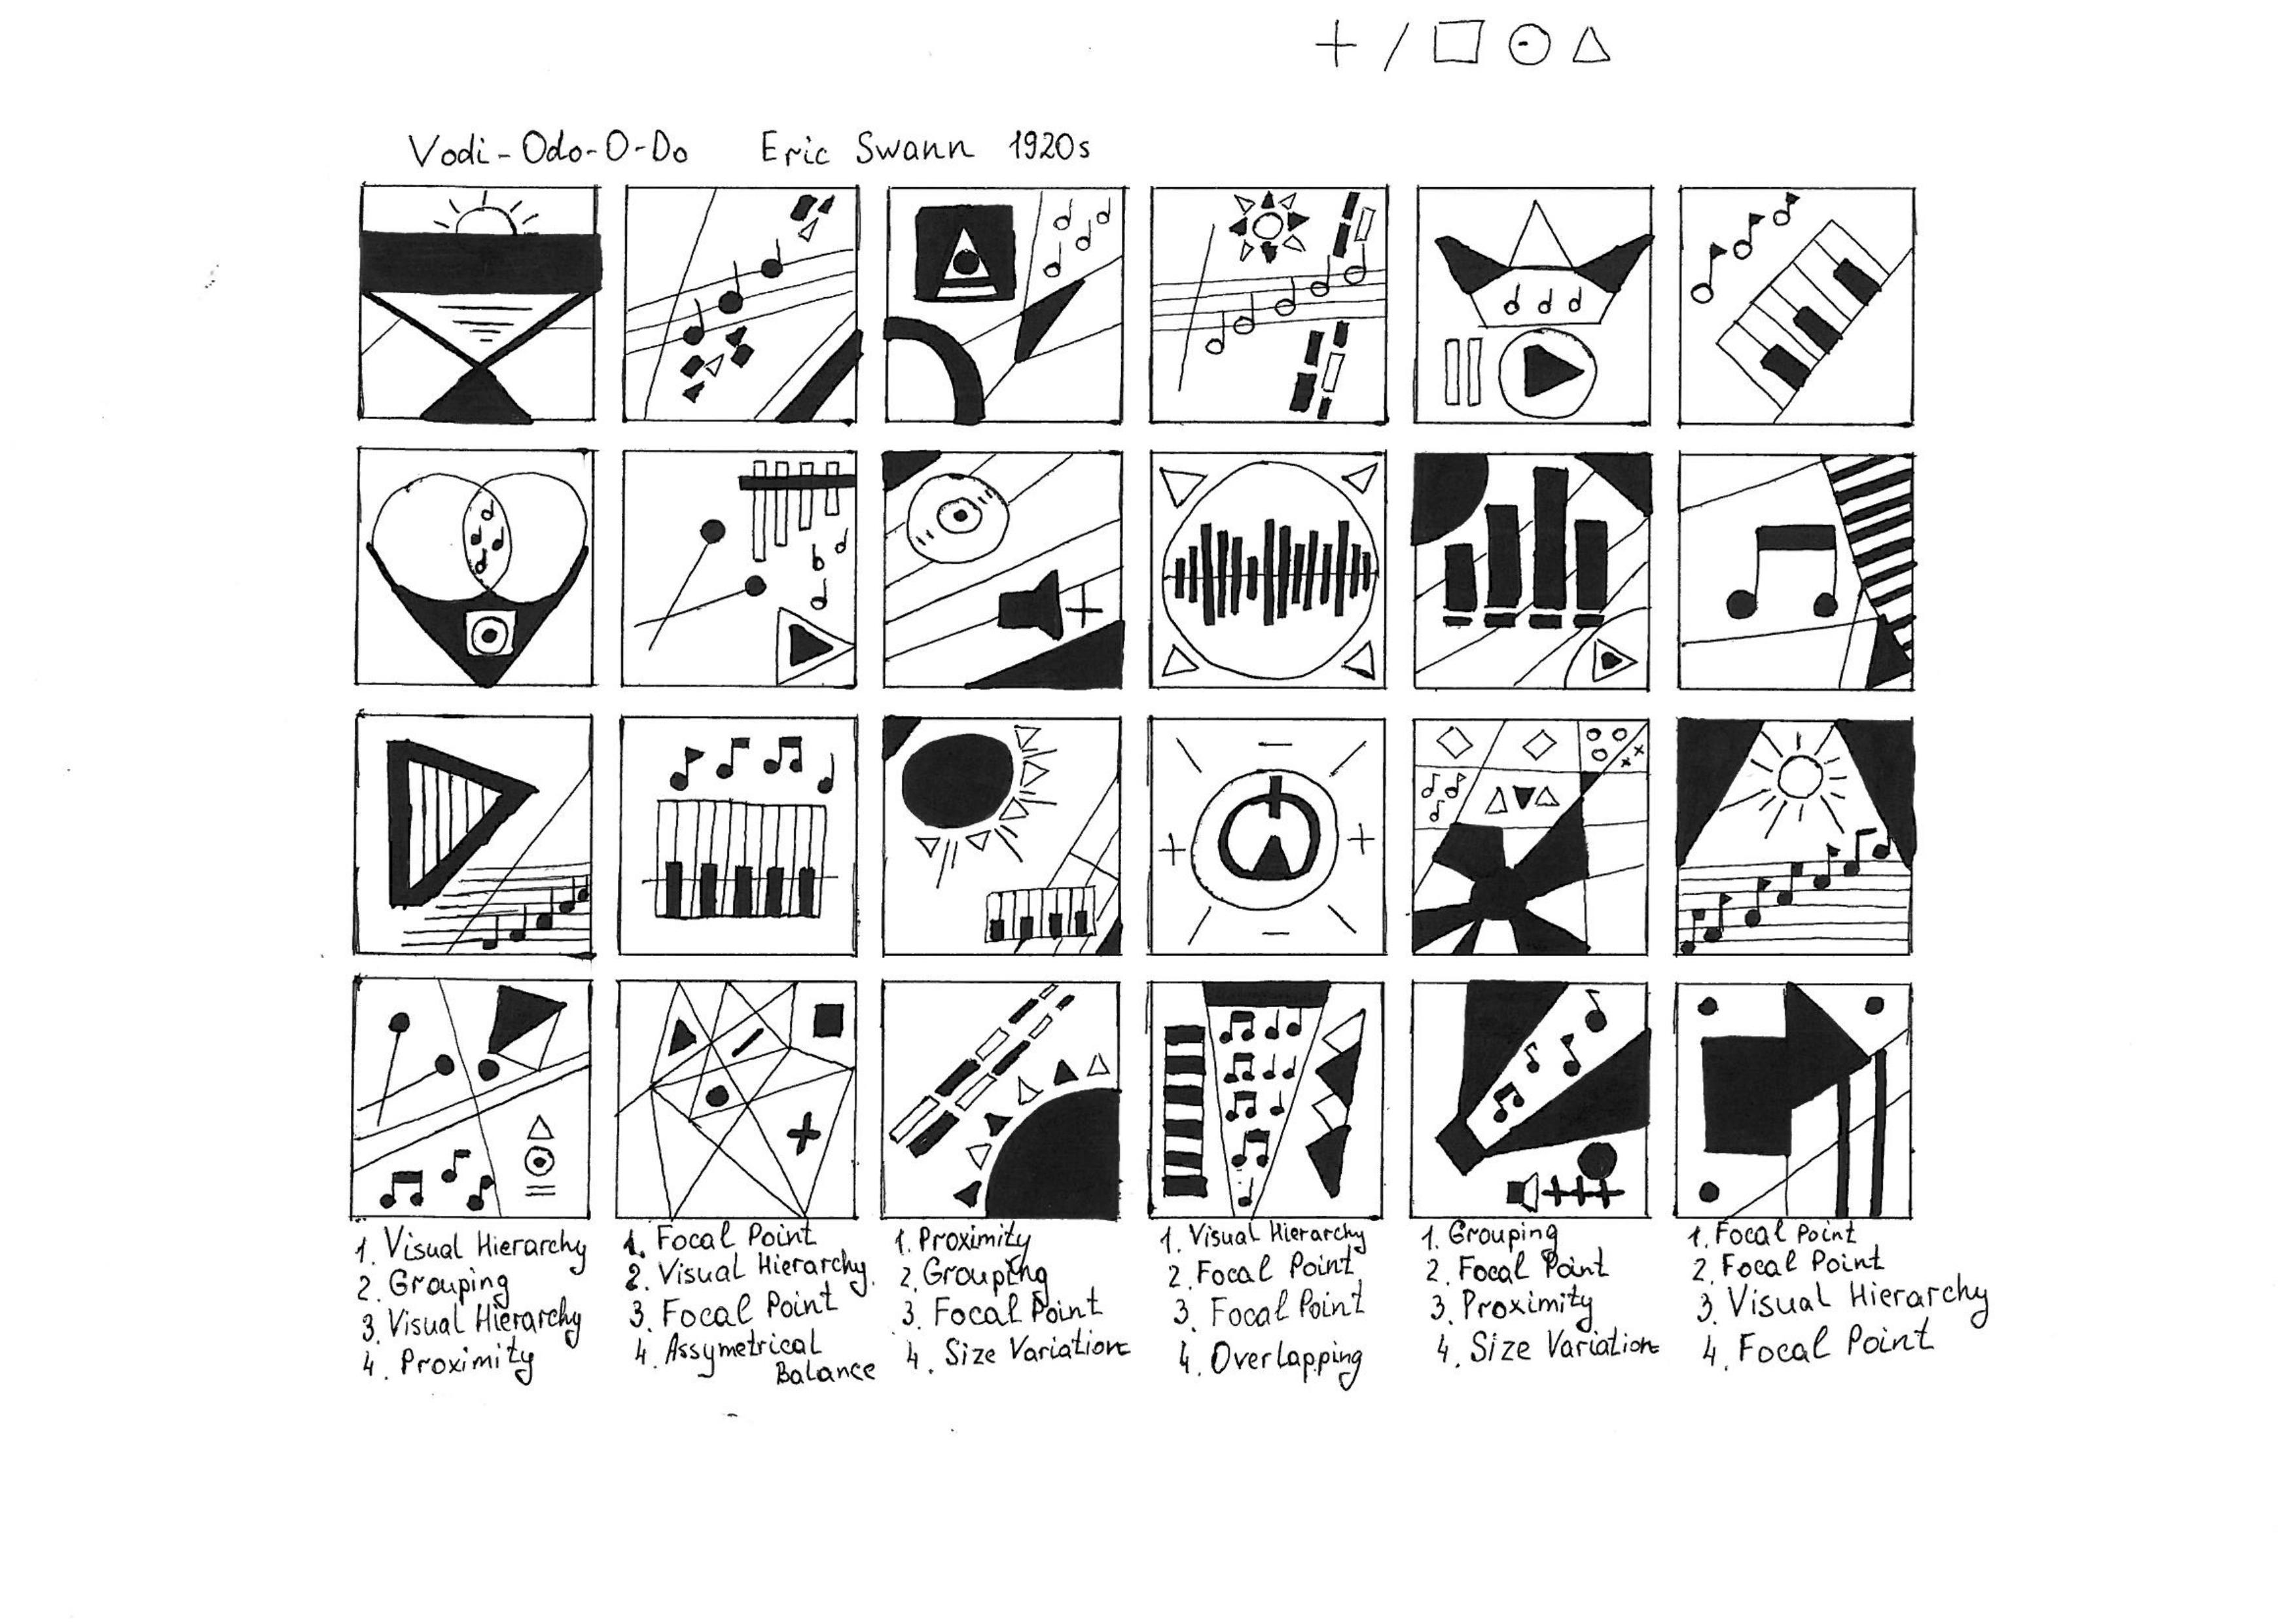 Vodi-Odo-O-Do Eric Swann 1920s
1. Visual Hierarchy
2. Grouping
3. Visual Hierarchy
4. Proximity
1. Focal Point
2. Visual Hierarchy.
3. Focal Point
4. Assymetrical
Balance
1. Proximity
2. Grouping
3. Focal Point
4. Size Variation
1. Visual Hierarchy
2. Focal Point
3. Focal Point
4. Overlapping
1. Grouping
2. Focal Point
3. Proximity
4. Size Variation
1. Focal Point
2. Focal Point
3. Visual Hierarchy
4. Focal Point